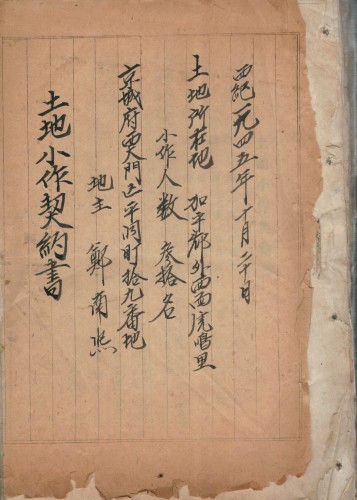 西紀一九四五年十月二十日
土地所在地 加平郡外西面虎鳴里
小作人數 参拾名
京城府西大門区平洞町拾九番地
地主 鄭蘭
土地小作契約書